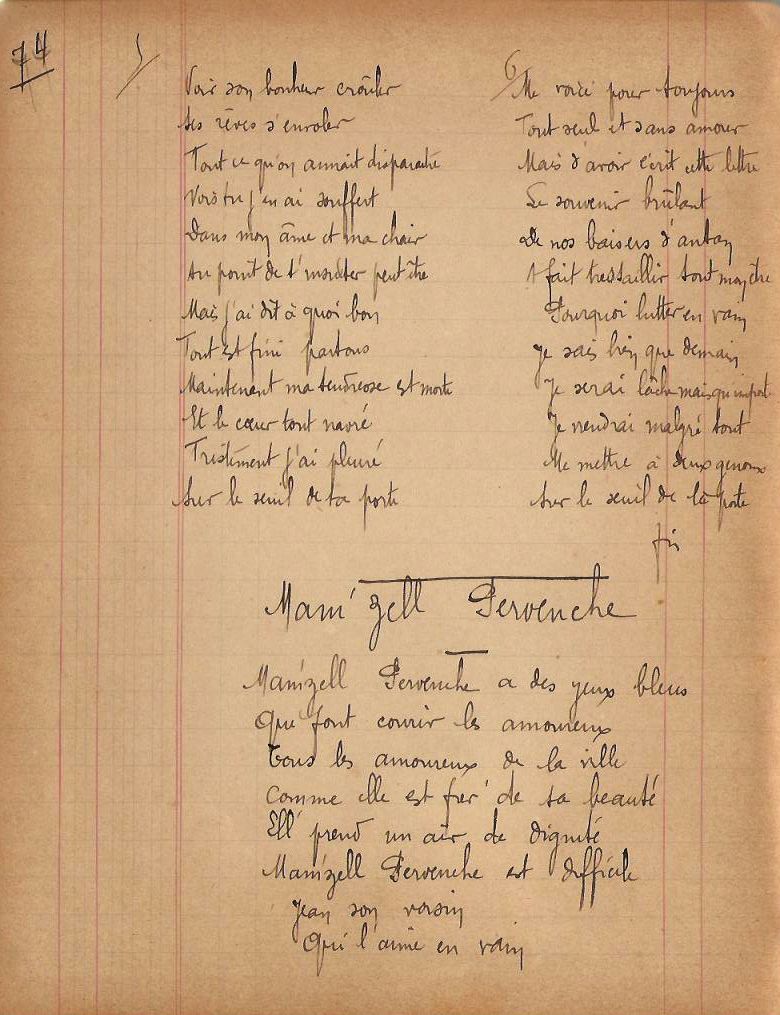 74
5/
Voir son bonheur crouler
Ses rêves s'enroler
Tout ce qu'on aimait disparaitre
Vois tu j'en ai souffert
Dans mon âme et ma chair
Au point de t'insulter peut être
Mais j'ai dit à quoi bon
Tout est fini partons
Maintenant ma tendresse est morte
Et le cœur tout navré
Tristement j'ai pleuré
Sur le seuil de ta porte
6/
Me voici pour toujours
Tout seul et sans amour
Mais d'avoir écrit cette lettre
Le souvenir brûlant
De nos baisers d'antan
A fait tressaillir tout mon être
Pourquoi lutter en vain
Je sais bien que demain
Je serai lâche mais qu'importe
Je viendrai malgré tout
Me mettre à deux genoux
Sur le seuil de la porte
fin
Mam'zell Pervenche
Mam'zell Pervenche a des yeux bleus
Que font courir les amoureux
Tous les amoureux de la ville
Comme elle est fièr' de sa beauté
Ell' prend un air de dignité
Mam'zell Pervenche est difficile
Jean son voisin
Qui l'aime en vain